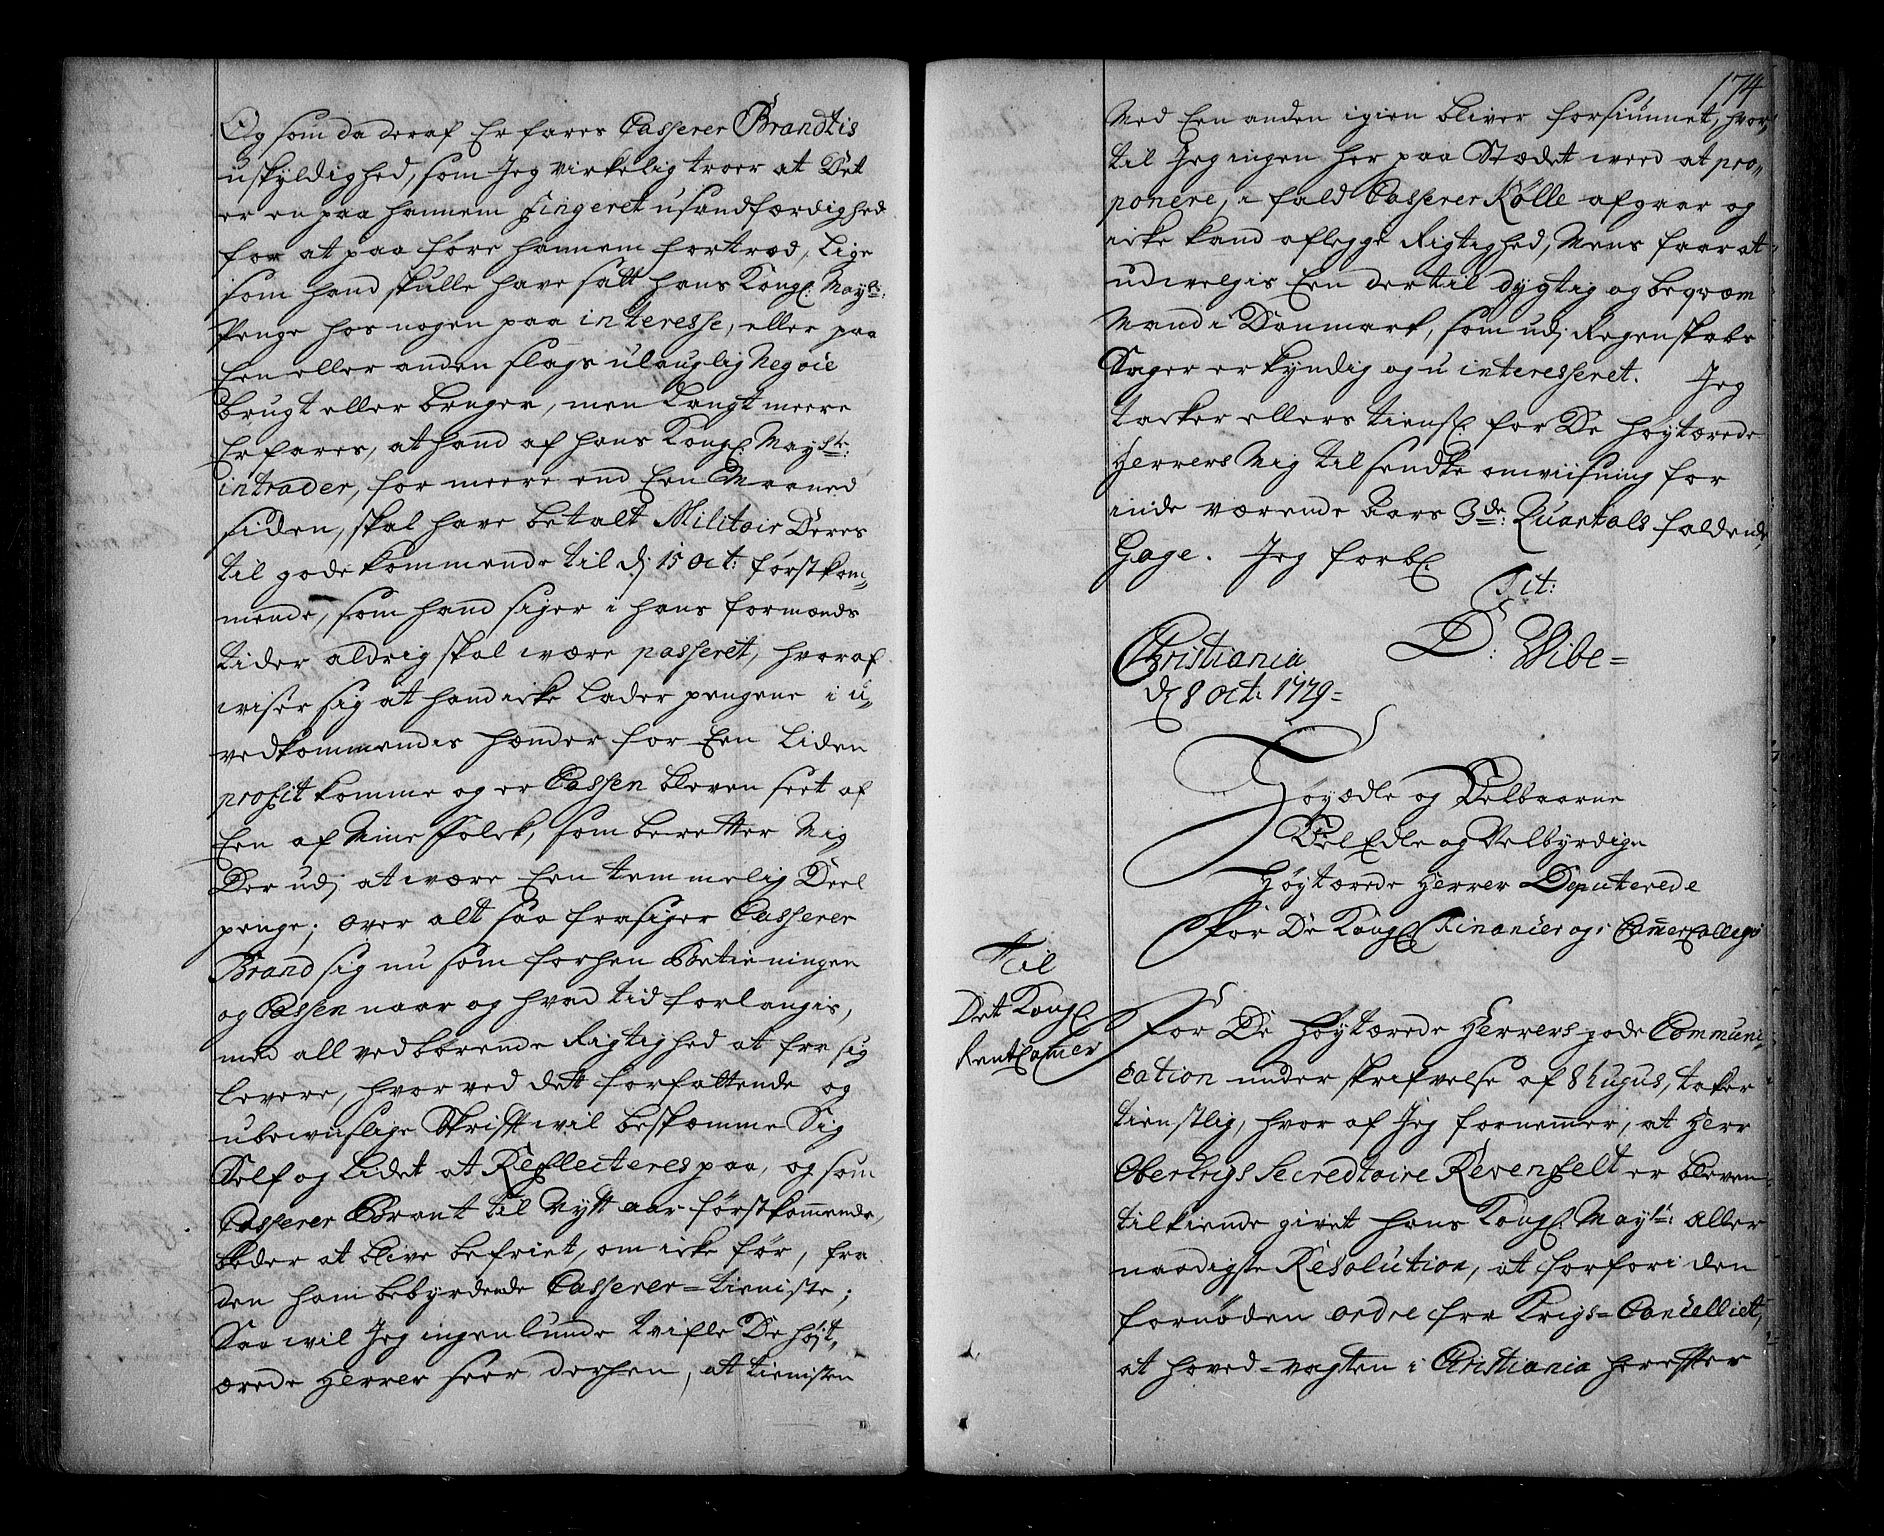 Og som da deraf Erfares Casserer Brandtis
uskyldighed, som Jeg virkelig troer at Det
er en paa hannem fingeret usandfærdighed
for at paa føre hannem fortræd, lige
som hand skulle have satt hans Kongl. Mayts:
penge hos nogen paa interesse, eller paa
Een eller anden slags ulauglig Negoie
brugt eller bruger, men langt meere
Erfares, at hand af hans Kongl. Mayts:
intrader, for meere end Een Maaned
siden, skal have betalt Militair Deres
til gode kommende til d. 15 Oct: førstkom„
mende, som hand siger i hans formænds
tider aldrig skal wære passeret, hvoraf
wiser sig at hand icke lader pengene i u„
vedkommendes hænder for Een liden
profit komme og er Cassen bleven seet af
Een af Mine Folck, som beretter Mig
Der udj at wære Een temmelig Deel
penge; over alt saa frasiger Casserer
Brand sig nu som forhen Betieningen
og Cassen naar og hvad tid forlangis,
med all vedbørende Rigtighed at fra sig
levere, hvor ved dett forfattende og
ubewuslige Skrifft wil beskæmme Sig
Self og lidet at Reflecteres paa, og som
Casserer Brant til Nytt aar førstkommende,
beder at blive befriet, om icke før, fra
den ham bebyrdende Casserer=tieniste;
Saa wil Jeg ingenlunde tvifle De høyt„
ærede Herrer seer derhen, at tienisten
174
Med Een anden igien bliver forsiunnet, hvor„
til Jeg ingen her paa Stædet weed at pro„
ponere, i fald Casserer Kølle afgaar og
icke kand aflegge Rigtighed, Mens faar at
udvelgis Een dertil dygtig og beqvæm
Mand i Danmark, som udj Regenskabs
Sager er kyndig og u interesseret. Jeg
tacker ellers tienstl. for De høytærede
Herrers Mig tilsendte anviisning for
inde værende Aars 3de: Quartals faldende
Gage. Jeg forbl.
Tit:
D: Wibe=
Christiania
d. 8 Oct: 1729=
Høyædle og Velbaarne
Vel Edle og Velbyrdige
Høytærede Herrer Deputerede
for De Kongl. Financier og Cammer Collegi
Til
Det Kongl.
RentCamer
For De Høytærede Herrers gode Communi„
cation under skrifvelse af 8 Augus, taker
tienstlig, hvor af Jeg fornemmer, at Herr
Oberkrigs Secredtaire Revenfelt er bleven
tilkiende givet hans Kongl. Mayts: aller
naadigste Resolution, at forfare den
fornøden ordre fra Krigs=Cancelliet,
at hoved=vagten i Christiania herefter